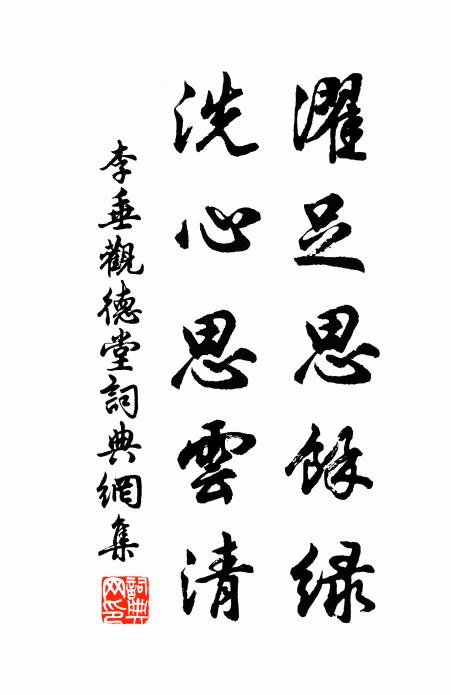 濯足思餘緑
洗心思雲清
李垂觀德堂詞典網集